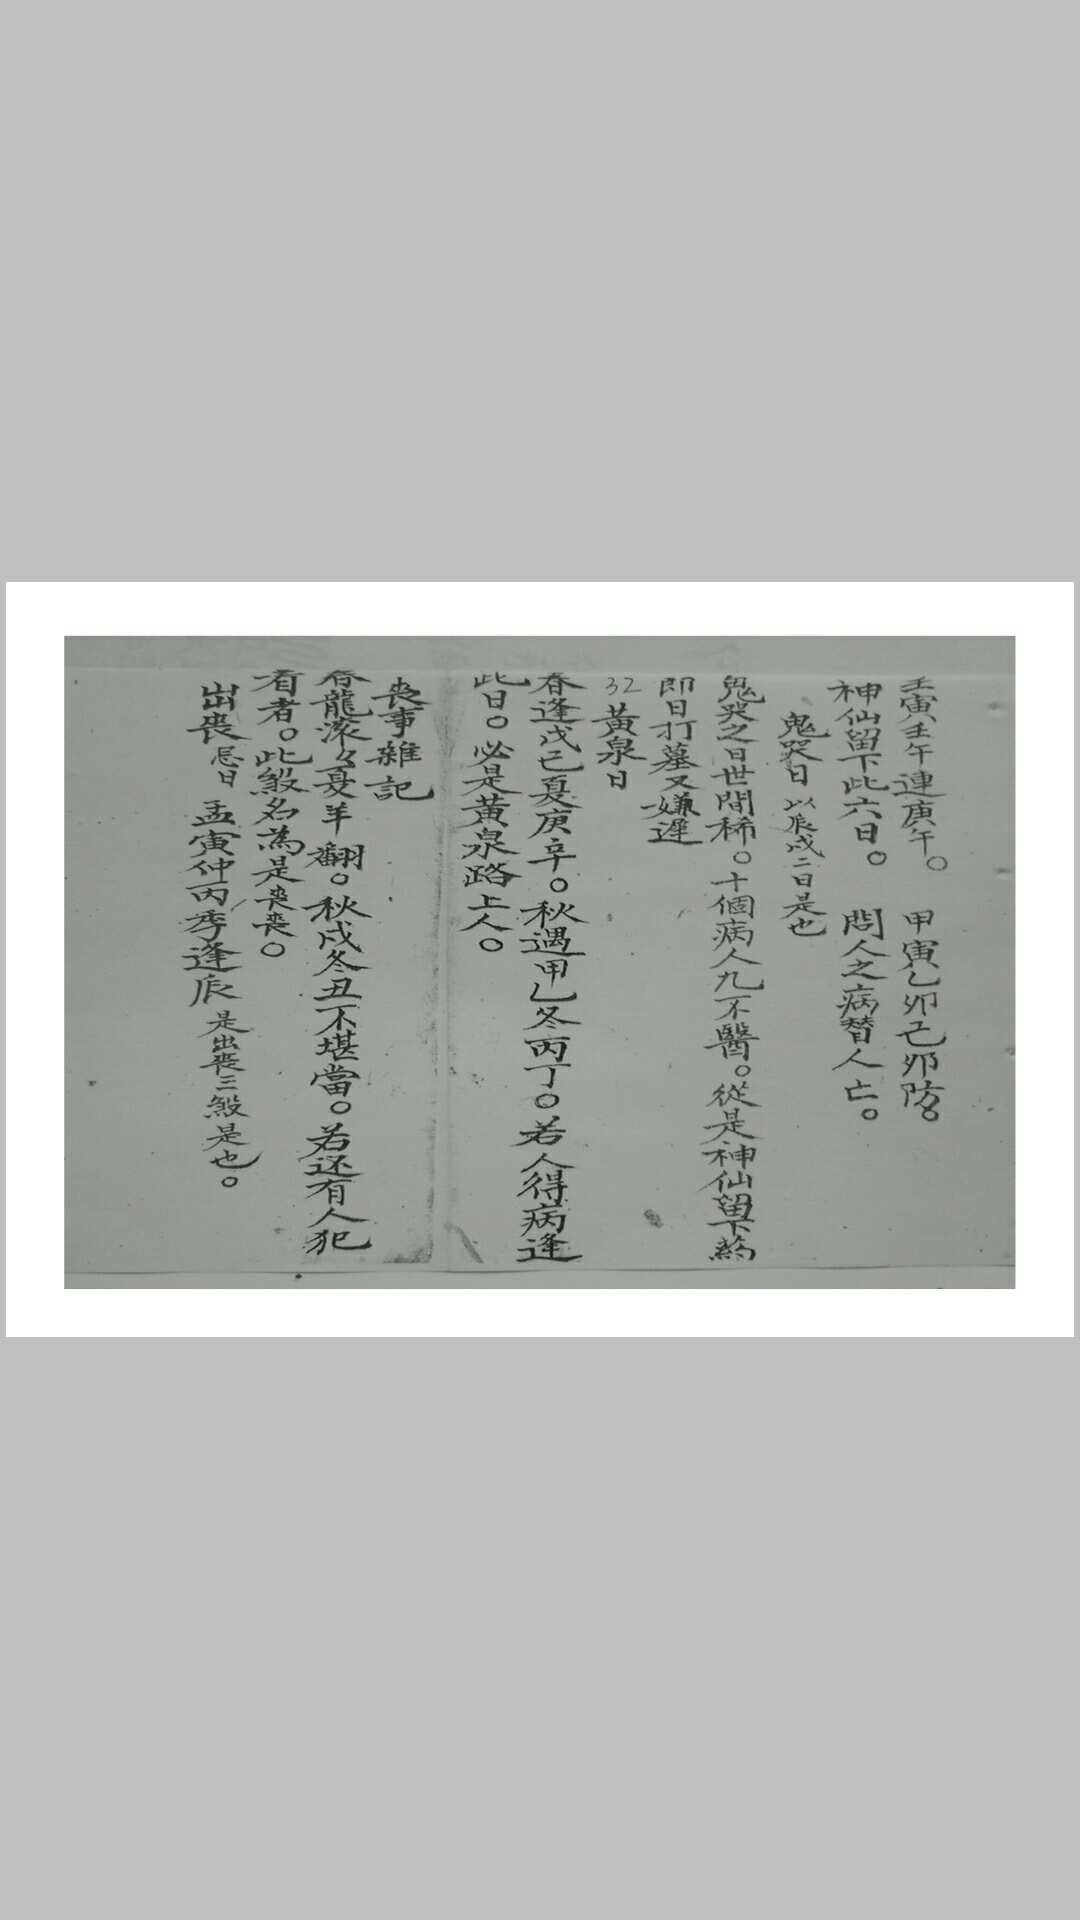 壬寅壬午連庚午。 甲寅乙卯己卯防。
神仙留下此六日。 問人之病替人亡。
鬼哭日 以辰戌二日是也
鬼哭之日世間稀。十個病人九不醫。從是神仙留下药
即日打墓又嫌遲
32 黃泉日
春逢戊己夏庚辛。秋遇甲乙冬丙丁。若人得病逢
此日。必是黃泉路上人。
喪事雜記
春龍滚々夏羊翻。秋戍冬丑不堪當。若还有人犯
着者。此煞名為是喪喪。
出喪忌日 孟寅仲丙季逢辰 是出喪三煞是也。